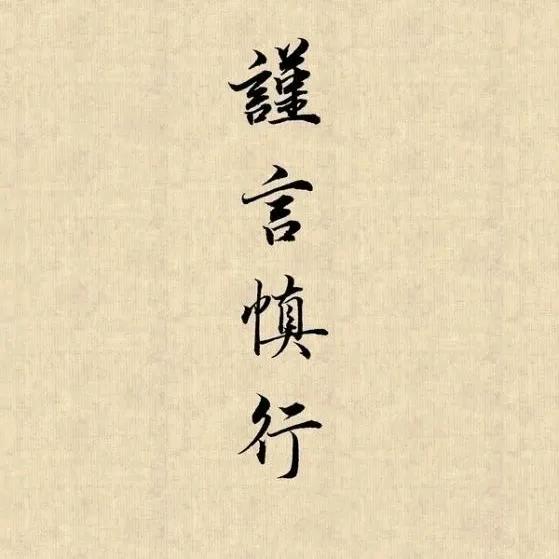 謹言慎行